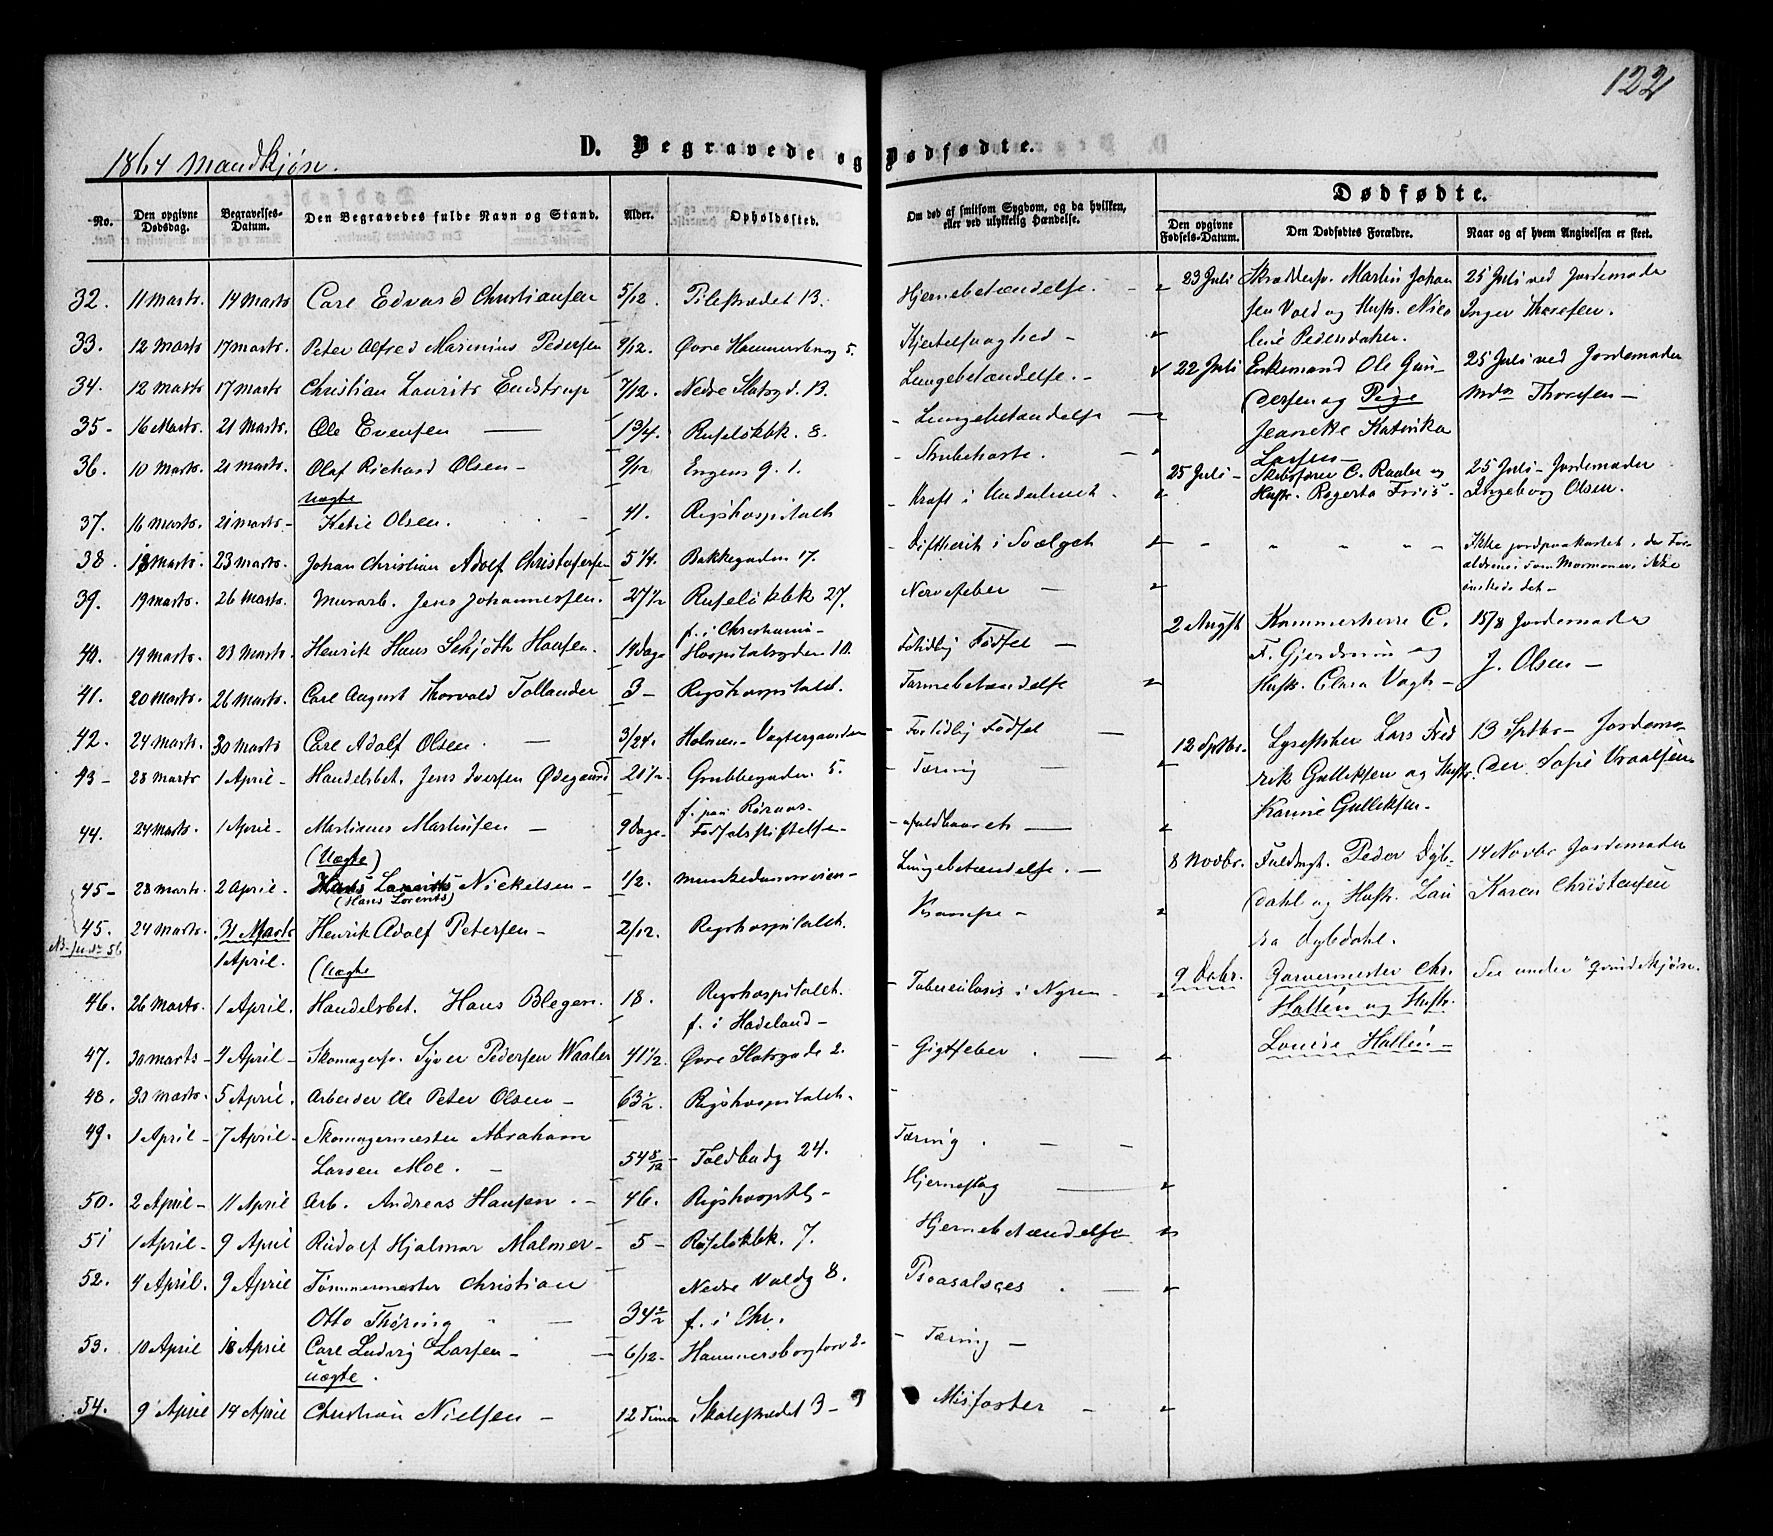 122
1864 Mandkjøn.
D. Begravede og Dødfødte.
No. | Den opgivne Dødsdag. | Begravelses-Datum. | Den Begravedes fulde Navn og Stand. | Alder. | Opholdssted. | Om død af smitsom Sygdom, og da hvilken, eller ved ulykkelig Hændelse.
32. | 11 Marts. | 14 Marts | Carl Edvard Christiansen | 5/12. | Pilestrædet 13. | Hjernebetændelse. -
33. | 12 Marts | 17 Marts. | Peter Alfred Marinius Pedersen | 9/12. | Øvre Hammersborg 5. | Kjertelsvaghed -
34. | 12 Marts | 17 Marts | Christian Laurits Endstrup | 7/12. | Nedre Slotsgd. 13. | Lungebetændelse. -
35- | 16 Marts. | 21 Marts. | Ole Evensen — | 1 3/4. | Ruseløkbk. 8. | - Lungebetændelse —
36. | 10 Marts. | 21 Marts. | Olaf Richard Olsen - | 9/12 | Engens g. 1. | - Strubehoste. -
Uægte
37. | 16 Marts. | 21 Marts - | Ketil Olsen. | 41. | Rigshospitalet | - Kræft i Underlivet -
38. | 18 Marts. | 23 Marts. | Johan Christian Adolf Christofersen | 5 1/4. | Bakkegaden 17. | - Diftherit i Svælget
39. | 19 Marts. | 26 Marts. | Murarb. Jens Johannessen. | 27 1/2 | Ruseløkbk 27. | Nervefeber -
f. i Christiania -
40. | 19 Marts. | 23 Marts. | Henrik Hans Schjøth Hansen. | 14 Dage | Hospitalsgden 10. | Fortidlig Fødsel —
41. | 20 Marts. | 26 Marts. | Carl August Thorvald Tollander | 3 - | Rigshospitalet. | Tarmebetændelse
42. | 24 Marts. | 30 Marts | Carl Adolf Olsen. — | 3/24. | Holmen - Vegtergaarden | - Fortidlig Fødsel —
43- | 28 Marts | 1 April - | Handelsbet. Jens Iversen Ødegaard | 20 1/2 | Grubbegaden. 5. | - Tæring —
f. paa Røraas -
44. | 24 Marts. | 1 April - | Martinus Martinsen — | 9 Dage - | Fødselsstiftelsen - | - ufuldbaaret —
(Uægte)
45- | 28 Marts. | 2 April - | Laurits Nickelsen - | 1/2. | Munkedamsveien - | Lungebetændelse. —
(Hans Lorents)
45. | 24 Marts. | 31 Marts | Henrik Adolf Petersen - | 2/12. | Rigshospitalet. | Krampe -
56
1 April.
(Uægte
46. | 26 Marts. | 1 April. | Handelsbet. Hans Blegen. | 18. | Rigshospitalet. | - Tuberculosis i Nyren -
f. i Hadeland -
47. | 30 Marts - | 4 April - | Skomagersv. Syver Pedersen Waaler | 41 1/2. | Øvre Slotsgade 2. | - Gigtfeber. —
48. | 30 Marts. | 5 April. | Arbeider Ole Peter Olsen - | 63 1/2. | Rigshospitalet. | -
49. | 1 April - | 7 April - | Skomagermester Abraham | Tæring. - -
Larsen Moe. - | 54 8/12 - | Toldbodg 24.
50. | 2 April - | 11 April | Arb. Andreas Hansen - | 46. | Rigshosptl - | Hjerneslag —
51 | 1 April - | 9 April | Rudolf Hjalmar Malmer - | 5 - | Ruseløkbk. 7. | Hjernebetændelse
52. | 4 April. | 9 April | Tømmermester Christian | Nedre Voldg 8. | Psoasabsces. -
Otto Thøring — | 34 1/2 | f. i Chr.
53. | 10 April | 18 April | Carl Ludvig Larsen - | 6/12 - | Hammersborgtorv 2 - | - Tæring -
uægte.
54. | 9 April | 14 April | Christian Nielsen - | 12 Timer | Skolestrædet 3 - | Misfoster -
Dødfødte.
Den opgivne Fødsels-Datum. | Den Dødfødtes Forældre. | Naar og af hvem Angivelsen er skeet.
23 Juli | Skræddersv. Martin Johan | 25 Juli ved Jordemoder
sen Vold og Hustr. Nico | Inger Thoresen.
line Pedersdatter.
22 Juli | Enkemand Ole Gun- | 25 Juli ved Jordemoder
dersen og Pige | Thoresen -
Jeanette Katrika
Larsen -
25 Juli - | Skibsfører C. Raaler og | 25 Juli - Jordemoder
Hustr. Rogerta Friis. | Ingeborg Olsen.
Ikke jordpaakastet, da For-
ældrene som Mormoner, ikke
ønskede det -
2 Augst | Kammerherre C. | 15/8 Jordemoder
F. Gjerdrum og | J. Olsen -
Hustr. Clara Vogt -
12 Sptbr. | Lars Fred | 13 Sptbr - Jordemo-
rik Gulliksen og Hustr. | der Sofie Vraalsen
Karine Gulliksen.
8 Novbr. | Fuldmgt. Peder Dyb- | 14 Novbr Jordemoder
dahl og Hustr. Lau | Karen Christensen
ra Dybdahl.
9 Dcbr. | Garvermester Chr. | See under "Qvindekjøn.
Hallén og Hustr.
Louise Hallén -